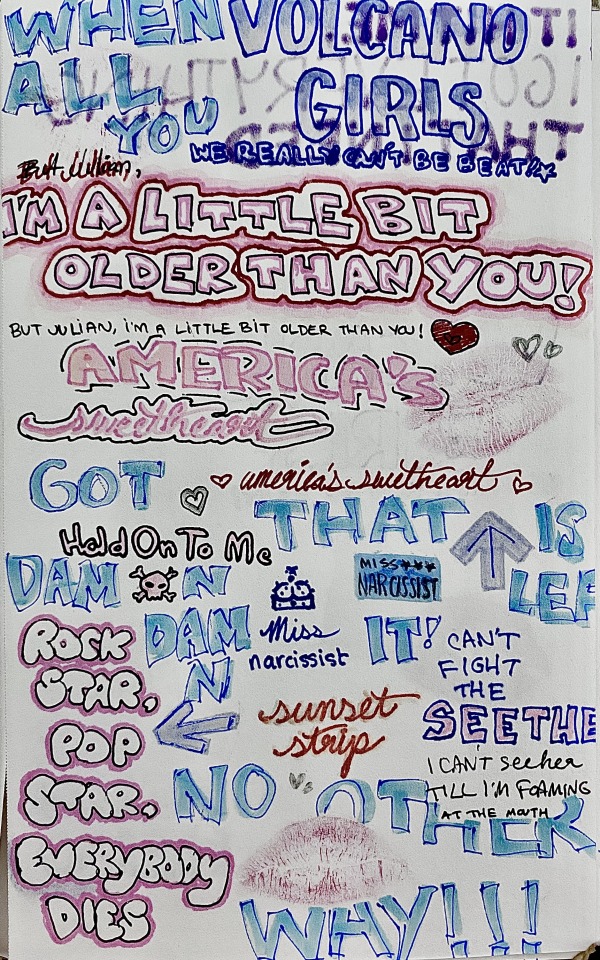 WHEN
ALL
YOU
VOLCANO
GIRLS
WE REALLY CAN'T BE BEAT!
But Julian,
I'M A LITTLE BIT
OLDER THAN YOU!
BUT JULIAN, I'M A LITTLE BIT OLDER THAN YOU!
AMERICA'S
sweetheart
GOT
america's swetheart
THAT IS
Hold On To Me
DAMN
MISS
NARCISSIST
LEF
ROCK
STAR,
POP
STAR,
EVERYBODY
DIES
DAMN
IT!
Miss
narcissist
CAN'T
FIGHT
THE
SEETHE
sunset
strip
I CAN'T see her
TILL I'M FOAMING
AT THE MOUTH
NO OTHER
WHY!!!